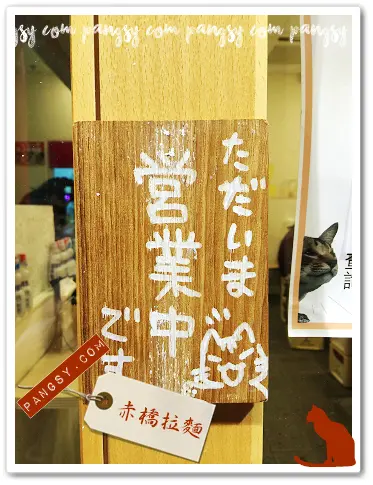 gsy com pangsy com pangsy com
ただいま
営業中
です
PANGSY.COM
赤橋拉麵